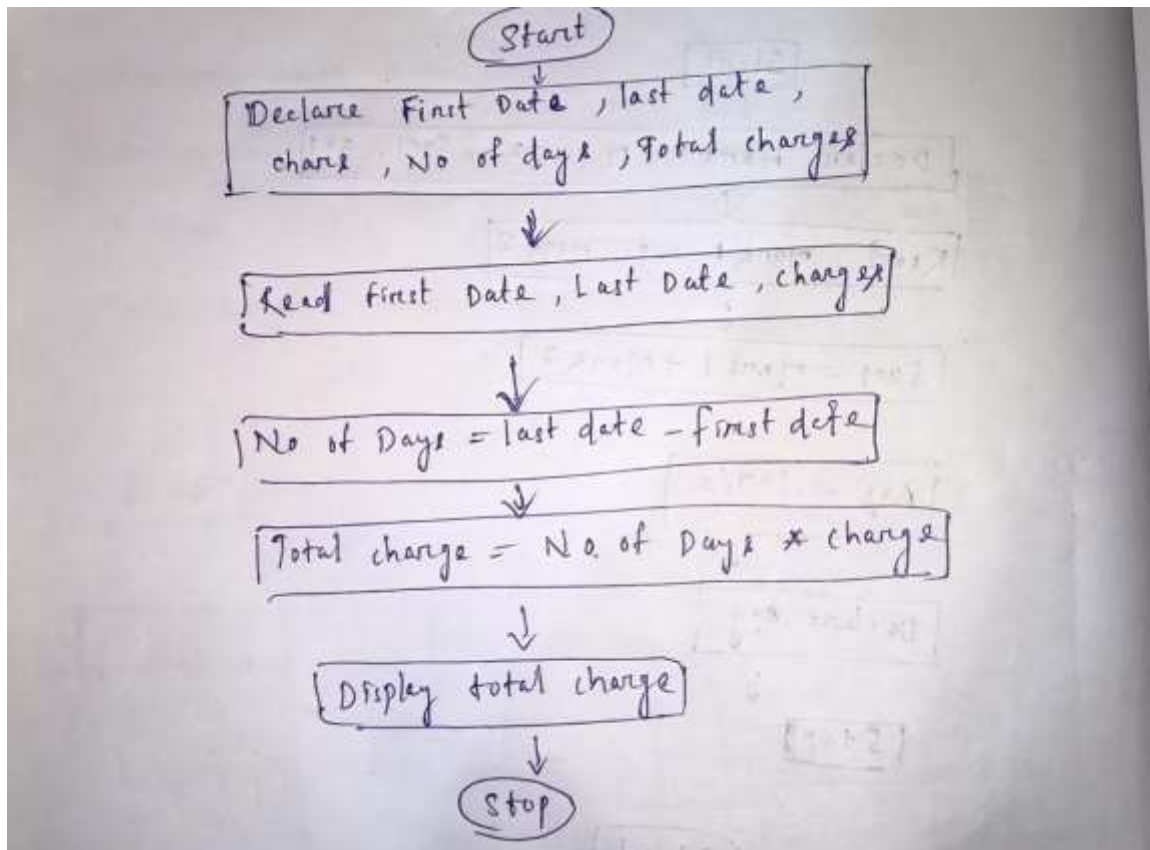 Start
Declare First Date, last date,
chars, No of days, Total charges
Read first Date, Last Date, charges
No of Days = last date - first date
Total charge = No. of Days * charge
Display total charge
Stop